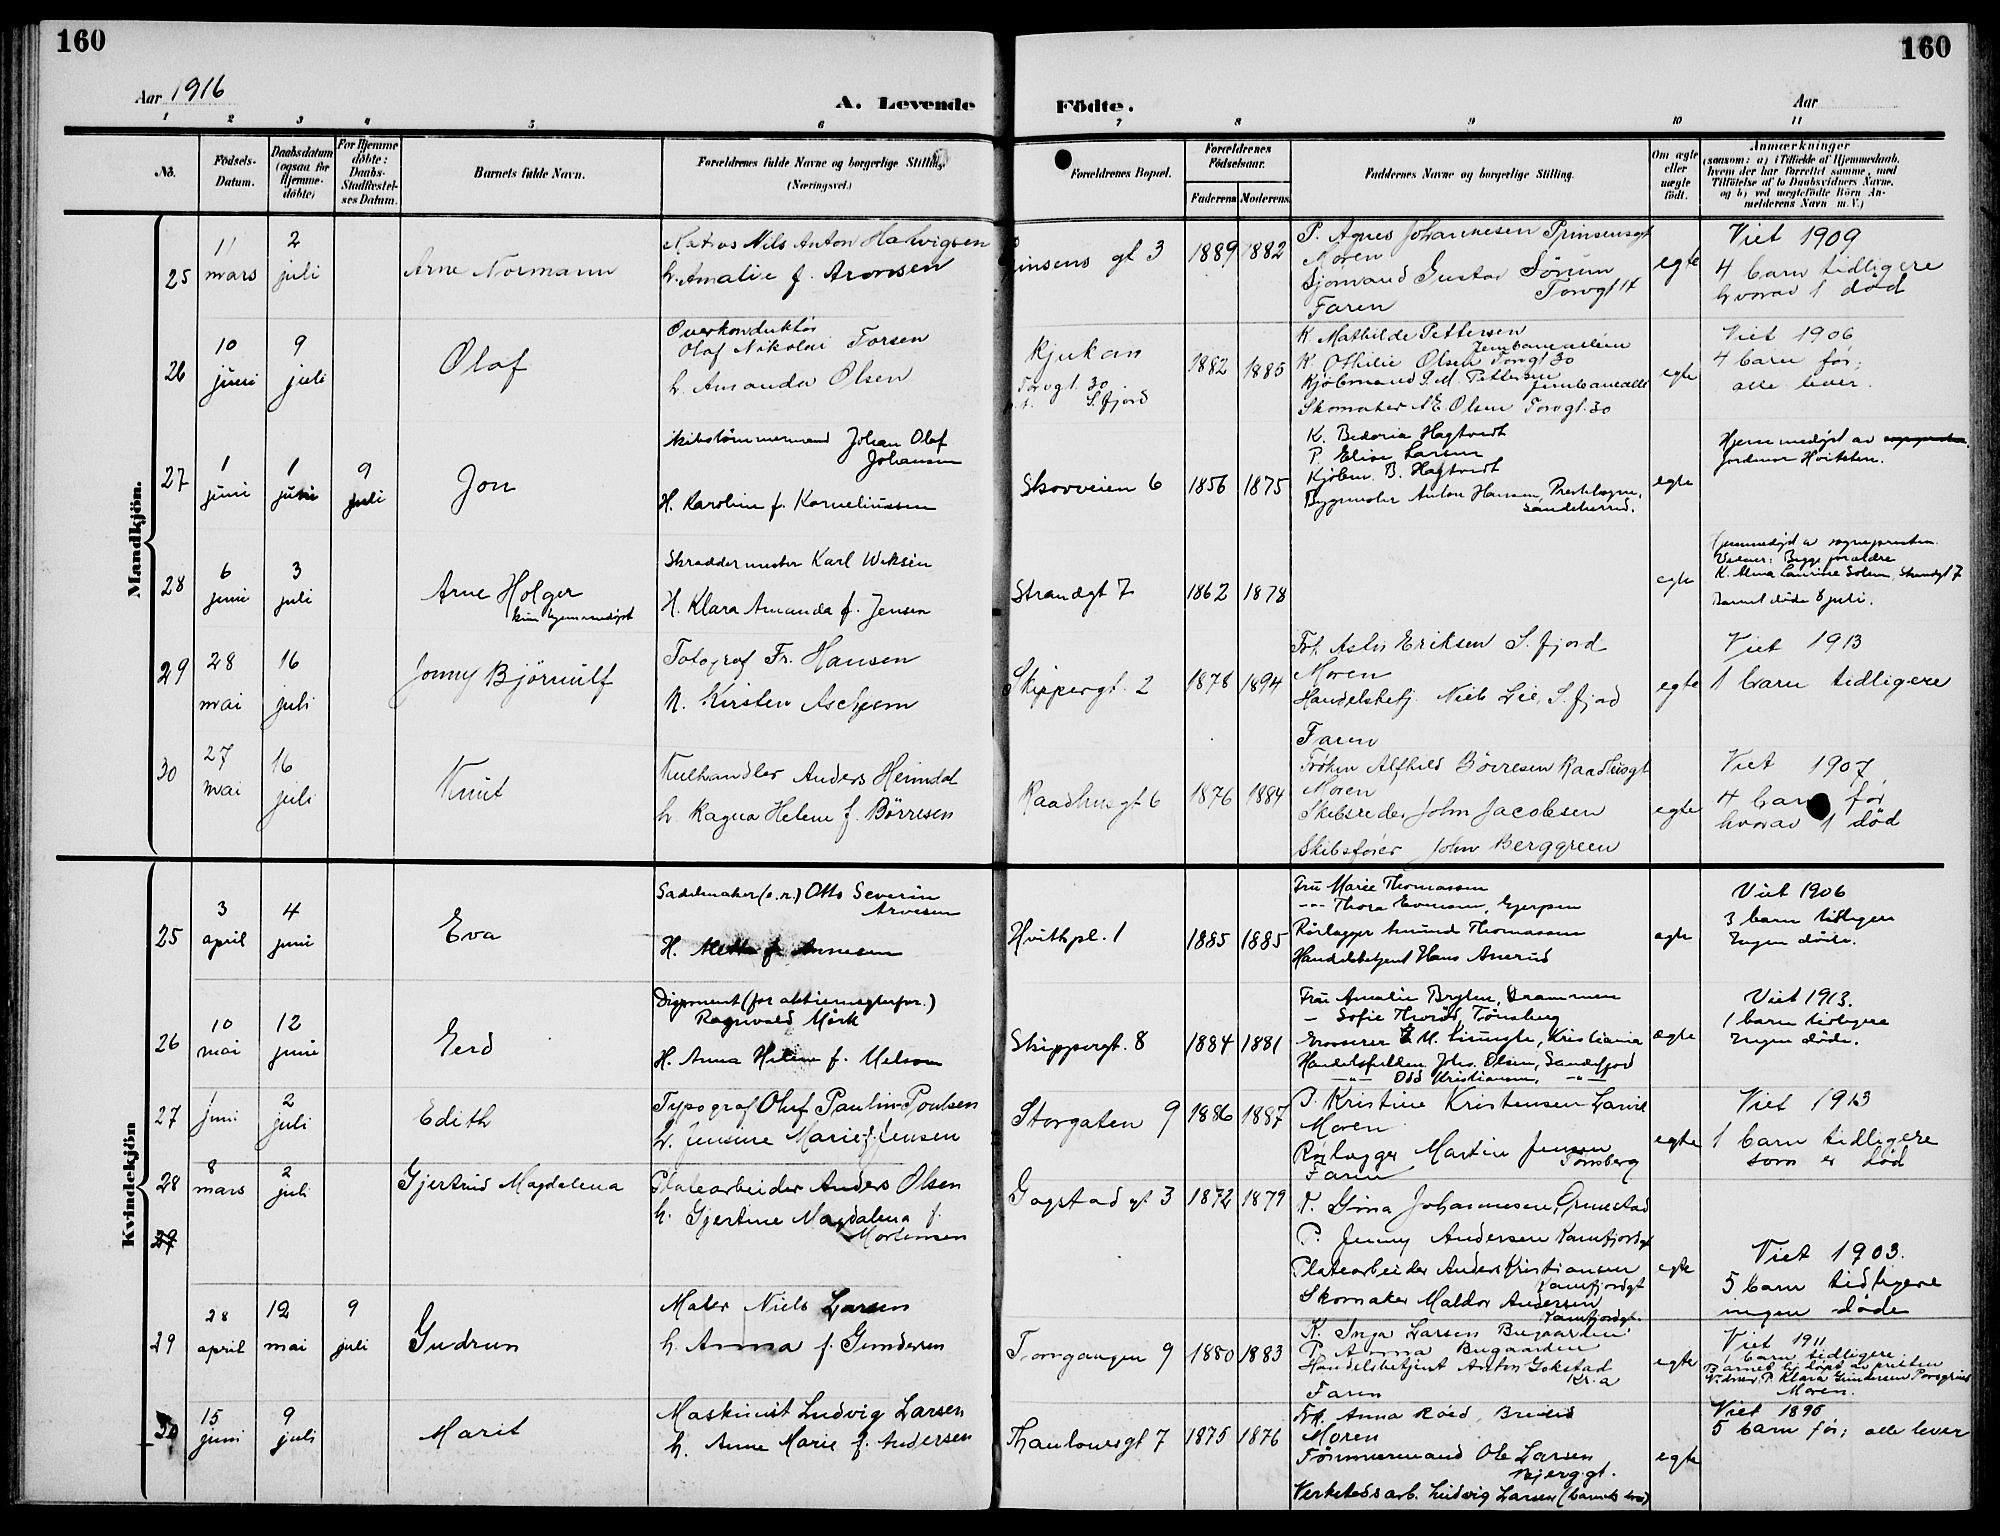 160
160
Aar 1916
A. Levende
Födte.
Aar
1 2 3 4 5 6 7 8 9 10 11
No.
Födsels-
Datum.
Daabsdatum
(ogsaa for
Hjemme-
döbte)
For Hjemme
döbte:
Daabs-
Stadfæstel-
ses Datum.
Barnets fulde Navn.
Forældrenes fulde Navne og borgerlige Stilling
(Næringsvei.)
Forældrenes Bopæl.
Forældrenes
Födselsaar.
Faderens
Moderens
Faddernes Navne og borgerlige Stilling.
Om ægte
eller
uægte
födt.
Anmærkninger
(saasom: a) i Tilfælde af Hjemmedaab,
hvem der har forrettet samme, med
Tilföielse af to Daabsvidners Navne,
og b) ved uægtefödte Börn An-
melderens Navn m. V.)
Mandkjön.
25
11
mars
2
juli
Arne Normann
Matros Nils Anton Halvigsen
h. Amalie f. Aronsen
insens gt 3
1889
1882
P. Agnes Johannesen Prinsensgt
Moren
Sjömand Gustav Sörum
Torvgt 14
Faren
egte
Viet 1909
4 barn tidligere
hvorav 1 död
26
10
juni
9
juli
Olaf
Overkonduktör
Olaf Nikolai Torsen
h. Amanda Olsen
Rjukan
Torvgt. 30
S.fjord
1882
1885
K. Mathilde Pettersen
Jernbanealleen
K. Othilie Olsen Torvgt 30
Kjöbmand S. M. Pettersen
Jernbanealle
Skomaker A E. Olsen Torvgt. 30
egte
Viet 1906
4 barn för;
alle lever.
27
1
juni
1
juni
9
juli
Jon
Skibstömmermand Johan Olaf
Johansen
H. Karoline f. Korneliussen
Skovveien 6
1856
1875
K. Bedoria Hagtvedt
P. Elise Larsen
Kjöbm. B. Hagtvedt
Bygmester Anton Hansen,
Sandeherred.
egte
Hjemmedöpt av
jordmor Hvitsten.
28
6
juni
3
juli
Arne Holger
kun hjemmedöpt
Skræddermester Karl Weksén
H. Klara Amanda f. Jensen
Strandgt 7
1862
1878
egte
Hjemmedöpt av sognepresten.
Vidner: Begge forældre
K. Alma Laurine Solem, Strandgt 7
Barnet döde 8 juli.
29
28
mai
16
juli
Jonny Björnulf
Fotograf Fr. Hansen
h. Kirsten Aschjem
Skippergt. 2
1878
1894
Frk. Astri Eriksen S.fjord
Moren
Handelsbetj. Niels Lie, S.fjord
Faren
egte
Viet 1913
1 barn tidligere
30
27
mai
16
juli
Knut
Kulhandler Anders Heimdal
h. Ragna Helene f. Börresen
Raadhusgt 6
1876
1884
Fröken Alfhild Börresen Raadhusgt
Moren
Skibsreder John Jacobsen
Skibsförer John Berggreen
egte
Viet 1907,
4 barn för
hvorav 1 död
Kvindekjön
25
3
april
4
juni
Eva
Sadelmaker (e.n.) Otto Severin
Arvesen
H. Mette f. Arnesen
Hvithpl. 1
1885
1885
Fru Marie Thomassen
-"- Thora Evensen, Gjerpen
Rörlægger Amund Thomassen
Handelsbetjent Hans Anerud
egte
Viet 1906
3 barn tidligere
Ingen döde.
26
10
mai
12
juni
Gerd
Disponent (for aktiemeglerfor.)
Ragnvald Mörk
H. Anna Helene f. Melsom
Skippergt. 8
1884
1881
Fru Amalie Bryhn, Drammen
- Sofie Thoröd, Tönsberg
Grosserer M. Liungle, Kristiania
Handelsfuldm. Johs. Olsen, Sandefjord
-"- Odd Kristiansen, -"-
ægte
Viet 1913.
1 barn tidligere
Ingen döde.
27
1
juni
2
juli
Edith
Typograf Oluf Paulin Poulsen
h. Jensine Marie f. Jensen
Storgaten 9
1886
1887
P. Kristine Kristensen Larvik
Moren
Rörlægger Martin Jensen
Tönsberg
Faren
egte
Viet 1913
1 barn tidligere
som er död
28
8
mars
2
juli
Gjertrud Magdalena
Platearbeider Anders Olsen
h. Gjertine Magdalena f.
Mortensen
Gogstad gt 3
1872
1879
F. Gina Johannesen, Grimstad
P. Jenny Andersen Kamfjordgt
Platearbeider Anders Kristiansen
Kamfjordgt
Skomaker Maldor Andersen
Kamfjordgt.
egte
Viet 1903.
5 barn tidligere
ingen döde
29
29
28
april
12
mai
9
juli
Gudrun
Maler Niels Larsen
h. Anna f. Gundersen
Torvgangen 9
1880
1883
K. Inga Larsen Bugaarden
P. Anna Bugaarden
Handelsbetjent Anton Gokstad
Kr.a
Faren
egte
Viet 1911
1 barn tidligere
Barnet hj.döpt av presten
Vidner, P. Klara Gundersen Porsgrund
Moren.
30
15
juni
9
juli
Marit
Maskinist Ludvig Larsen
h. Anne Marie f. Andersen
Thaulowsgt 7
1875
1876
Frk. Anna Röed, Breilid
Moren
Tömmermand Ole Larsen
Bjerggt.
Verkstedsarb. Ludvig Larsen (barnets bror)
egte
Viet 1896
5 barn för; alle lever